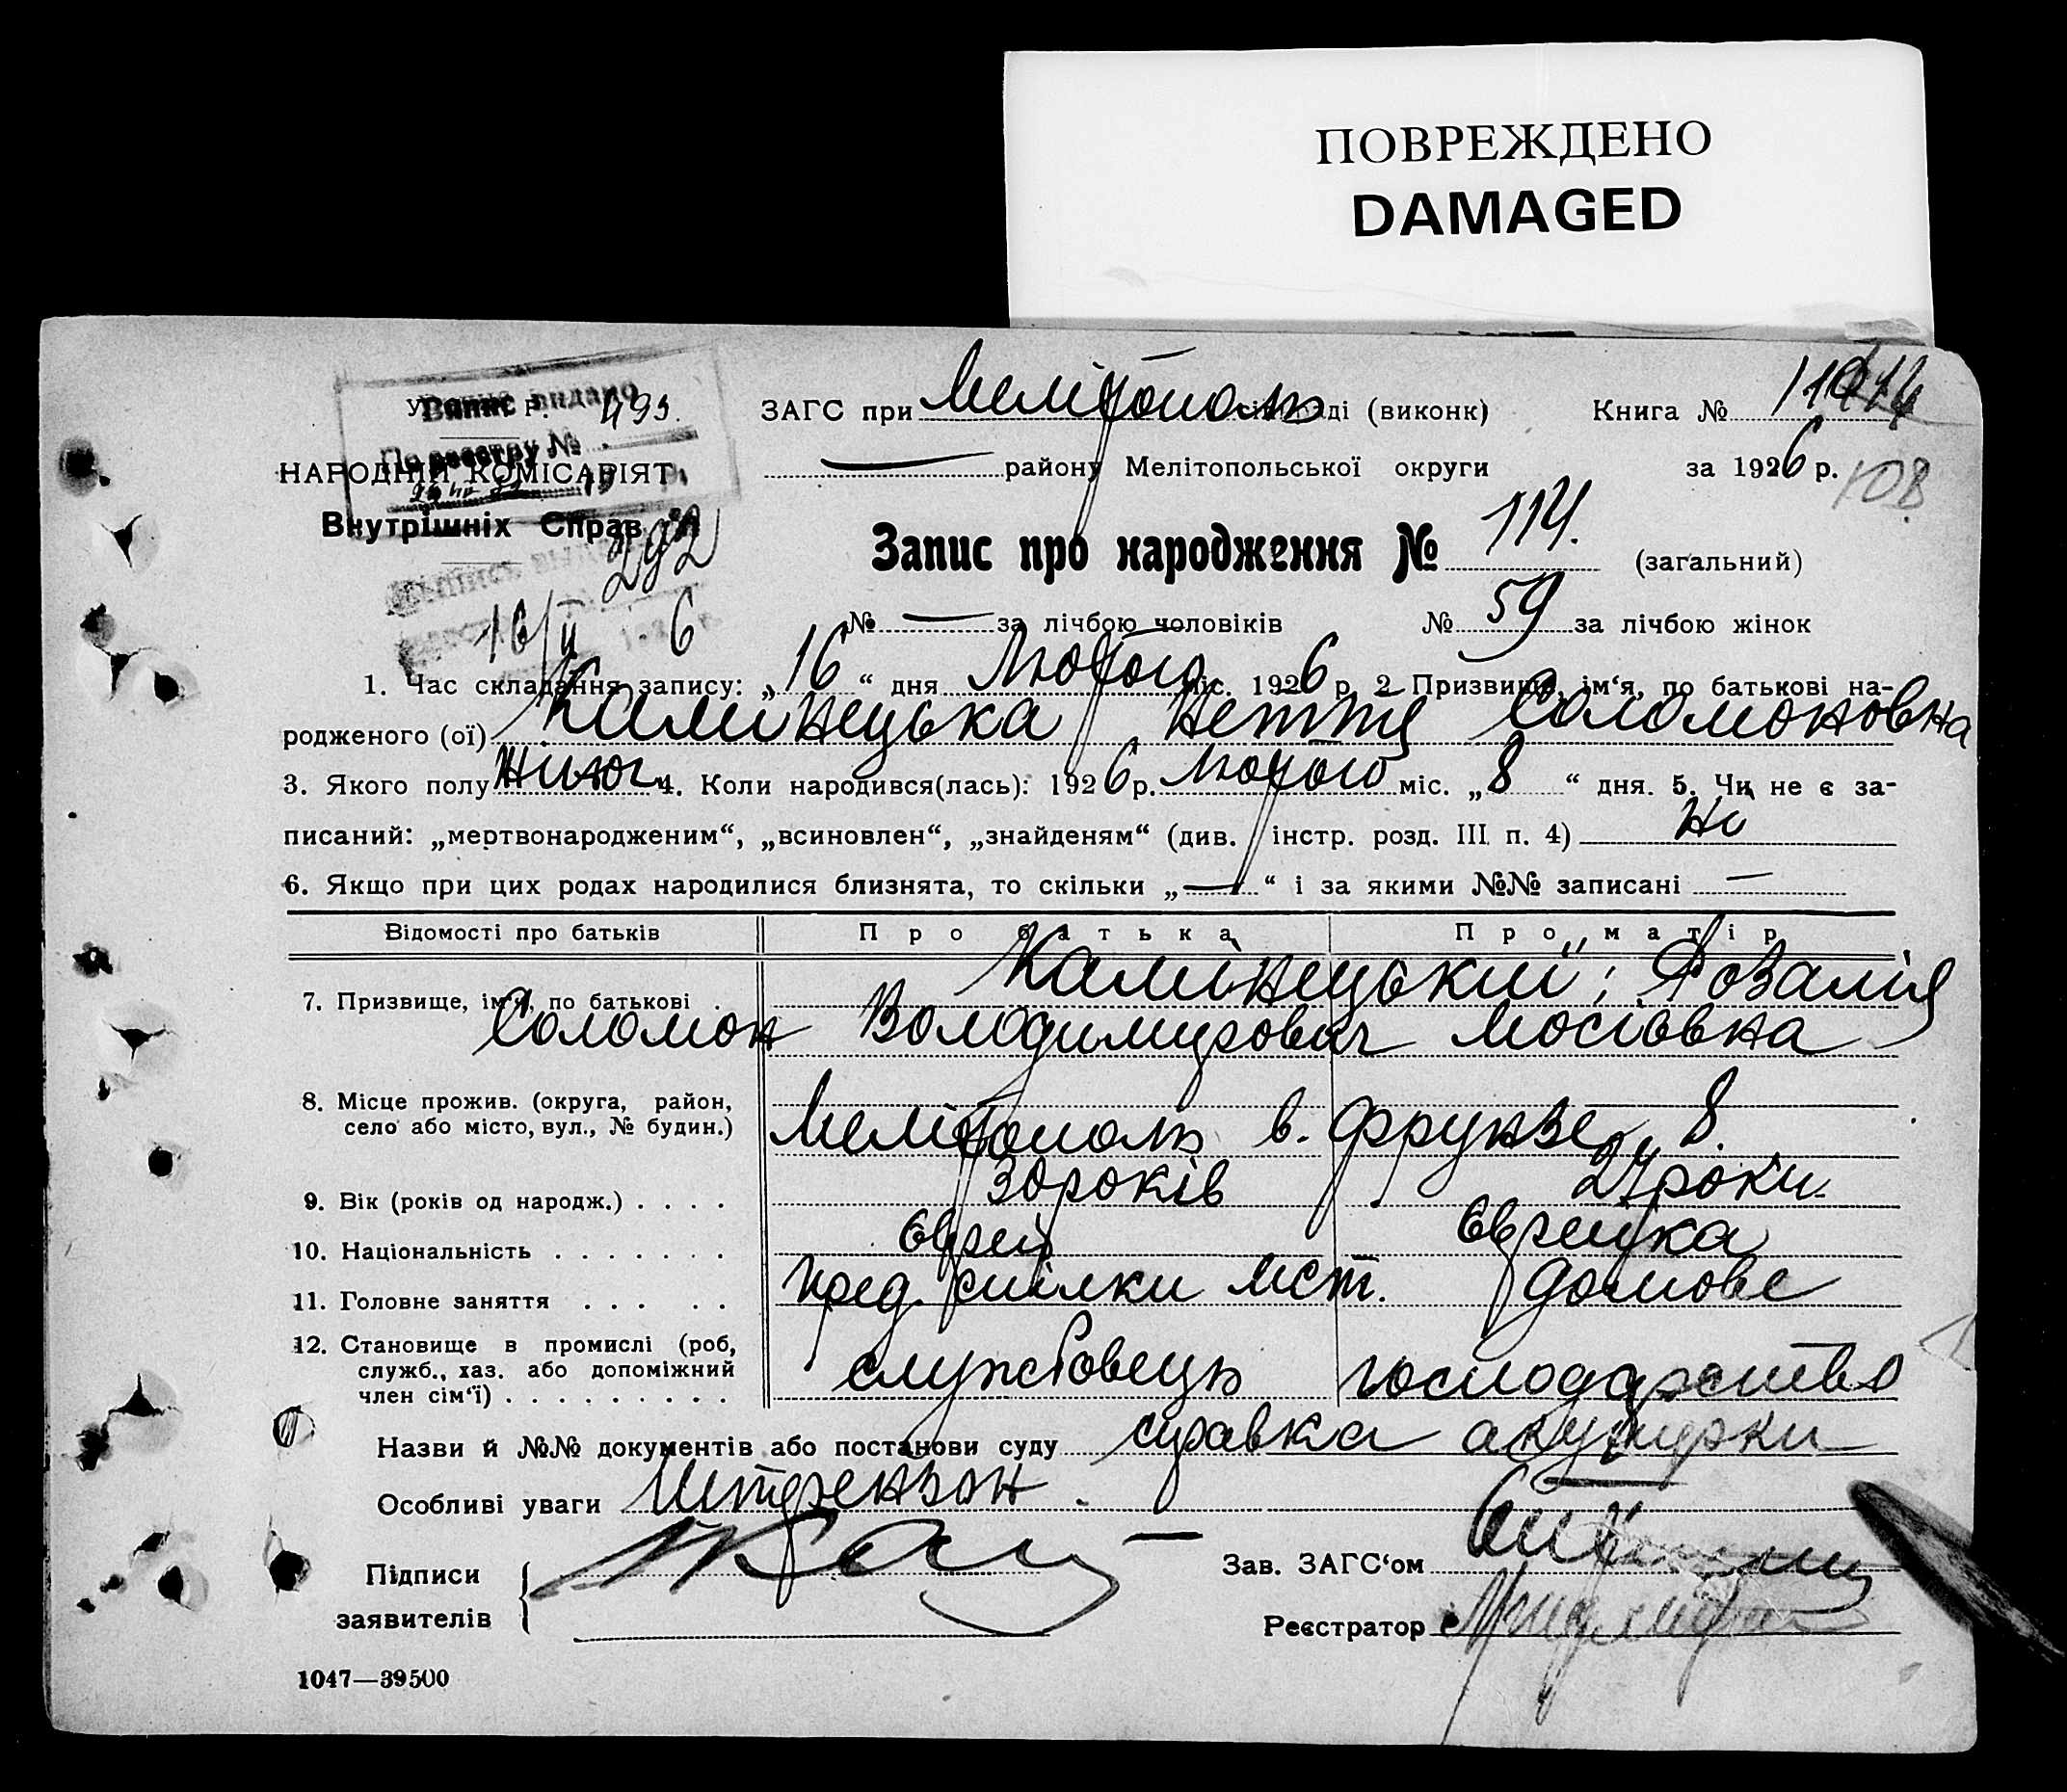 ПОВРЕЖДЕНО
DAMAGED
Випис видано
По реєстру №
493.
ЗАГС при Мелітополь (виконк) Книга № 114
НАРОДНІЙ КОМІСАРІЯТ — району Мелітопольської округи за 1926 р. 108
Внутрішніх Справ
292
Запис про народження № 114. (загальний)
16/II 6
№ — за лічбою чоловіків № 59 за лічбою жінок
1. Час складання запису: „16“ дня Лютого міс. 1926 р. 2 Призвище, ім‘я, по батькові на-
родженого (ої) Камінецька Нетта Соломоновна
3. Якого полу Жіноч. 4. Коли народився(лась): 1926 р. Лютого міс. „8“ дня. 5. Чи не є за-
писаний: „мертвонародженим“, „всиновлен“, „знайденям“ (див. інстр. розд. III п. 4) Ні
6. Якщо при цих родах народилися близнята, то скільки „—“ і за якими №№ записані —
Відомості про батьків Про батька Про матір
Камінецький; Розалія
7. Призвище, ім‘я, по батькові .
Соломон Володимирович Мосіовна
8. Місце прожив. (округа, район,
село або місто, вул., № будин.) Мелітополь в. Фрунзе 8.
9. Вік (років од народж.) . . . . 30 років 24 роки
10. Національність . . . . . . . Єврей Єврейка
11. Головне заняття . . . . . пред. спілки мст. домове
12. Становище в промислі (роб,
служб., хаз. або допоміжний
член сім‘ї) . . . . . . . . . службовець господарство
Назви й №№ документів або постанови суду справка акушерки
Особливі уваги Штрензон.
Підписи
заявителів
Зав. ЗАГС‘ом
Реєстратор
1047—39500